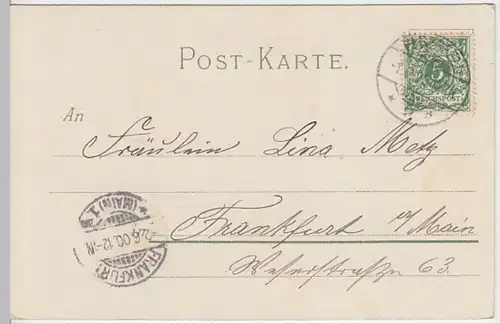 POST-KARTE.
5
REICHSPOST
An
Fräulein Lina Metz
Frankfurt a/Main
Weserstraße 63.
* (MAIN) 1
6.00.12-1N
FRANKFURT